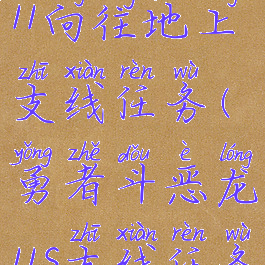 11向往地上
zhī xiàn rèn wù
支线任务(
yǒng zhě dǒu è lóng
勇者斗恶龙
zhī xiàn rèn wù
11S支线任务